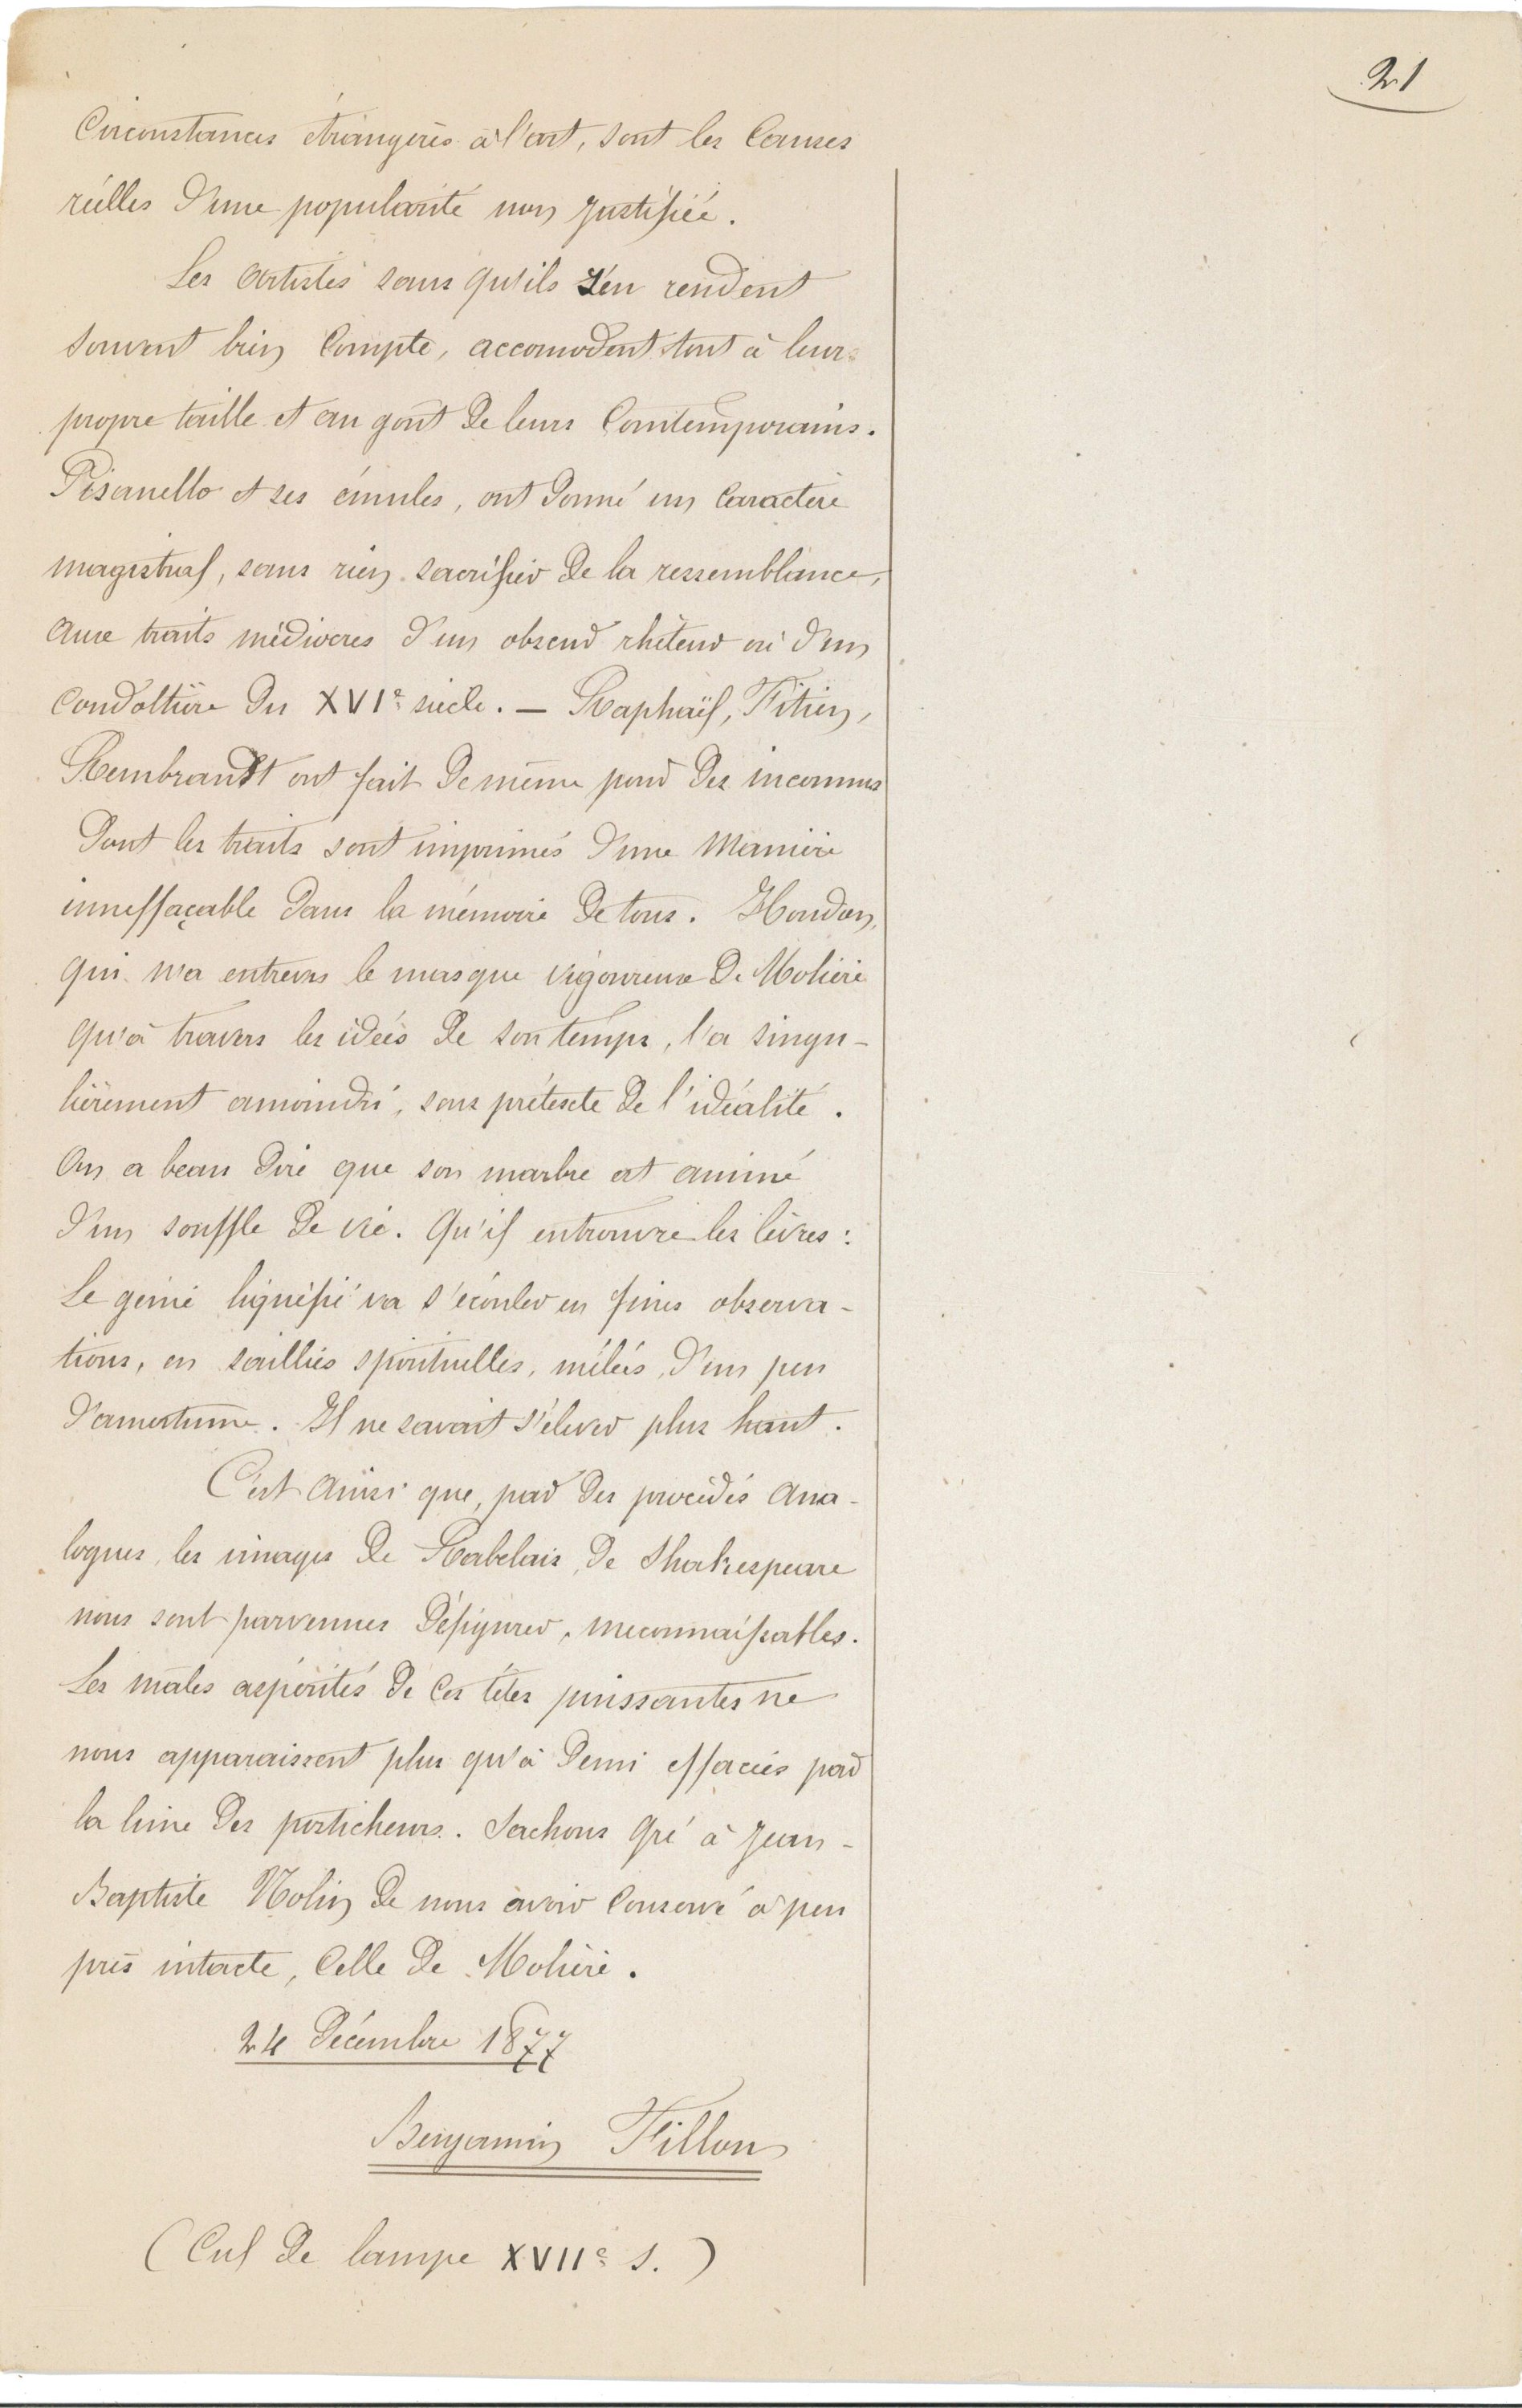 21
Circonstances étrangères à l'art, sont les Causes
réelles d'une popularité non justifiée.
Les artistes sans qu'ils s'en rendent
souvent bien Compte, accomodent tout à leurs
propre taille et au goût de leurs Comtemporains.
Pisanello et ses émules, ont donné un Caractère
magistral, sans rien sacrifier de la ressemblance,
aux traits médiocres d'un obscur rhéteur ou d'un
Condottière du XVIe siècle. — Raphaël, Titien,
Rembrandt ont fait de même pour des inconnus
dont les traits sont imprimés d'une Manière
inneffaçable dans la mémoire de tous. Houdon,
qui n'a entrevu le masque vigoureux de Molière
qu'à travers les idées de son temps, l'a singu-
lièrement amoindri, sous prétexte de l'idéalité.
On a beau dire que son marbre est animé
d'un souffle de vie. Qu'il entrouvre les lèvres :
Le génie liquéfié va s'écouler en fines observa-
tions, en saillies spirituelles, mêlées d'un peu
d'amertume. Il ne savait s'élever plus haut.
C'est Ainsi que, par des procédés Ana-
logues, les images de Rabelais, de Shakespeare
nous sont parvenues défigurer, meconnaissables.
Les mâles aspérités de Ces têtes puissantes ne
nous apparaissent plus qu'à demi effacées par
la lime des posticheurs. Sachons Gré à Jean-
Baptiste Nolin de nous avoir Conservé à peu
près intacte, Celle de Molière.
24 Décembre 1877
Benjamin Fillon
(Cul de lampe XVIIe s.)